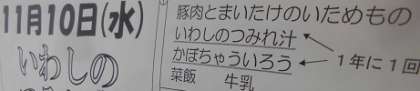 11月10日(水)
いわしの
豚肉とまいたけのいためもの
いわしのつみれ汁
かぼちゃういろう
1年に1回
菜飯 牛乳